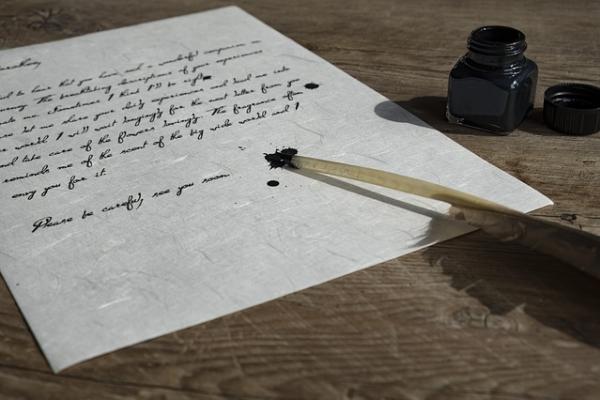 to hear that you have such a wonderful companion on
The tantalizing descriptions of your experiences
me. Sometimes I think I
let me share your experiences and me into
world! I will wait longingly for the next letter from you
and take care of the flowers lovingly. The fragrance often
reminds me of the scent of the big wide world and I
envy you for it.
Please be careful, see you soon